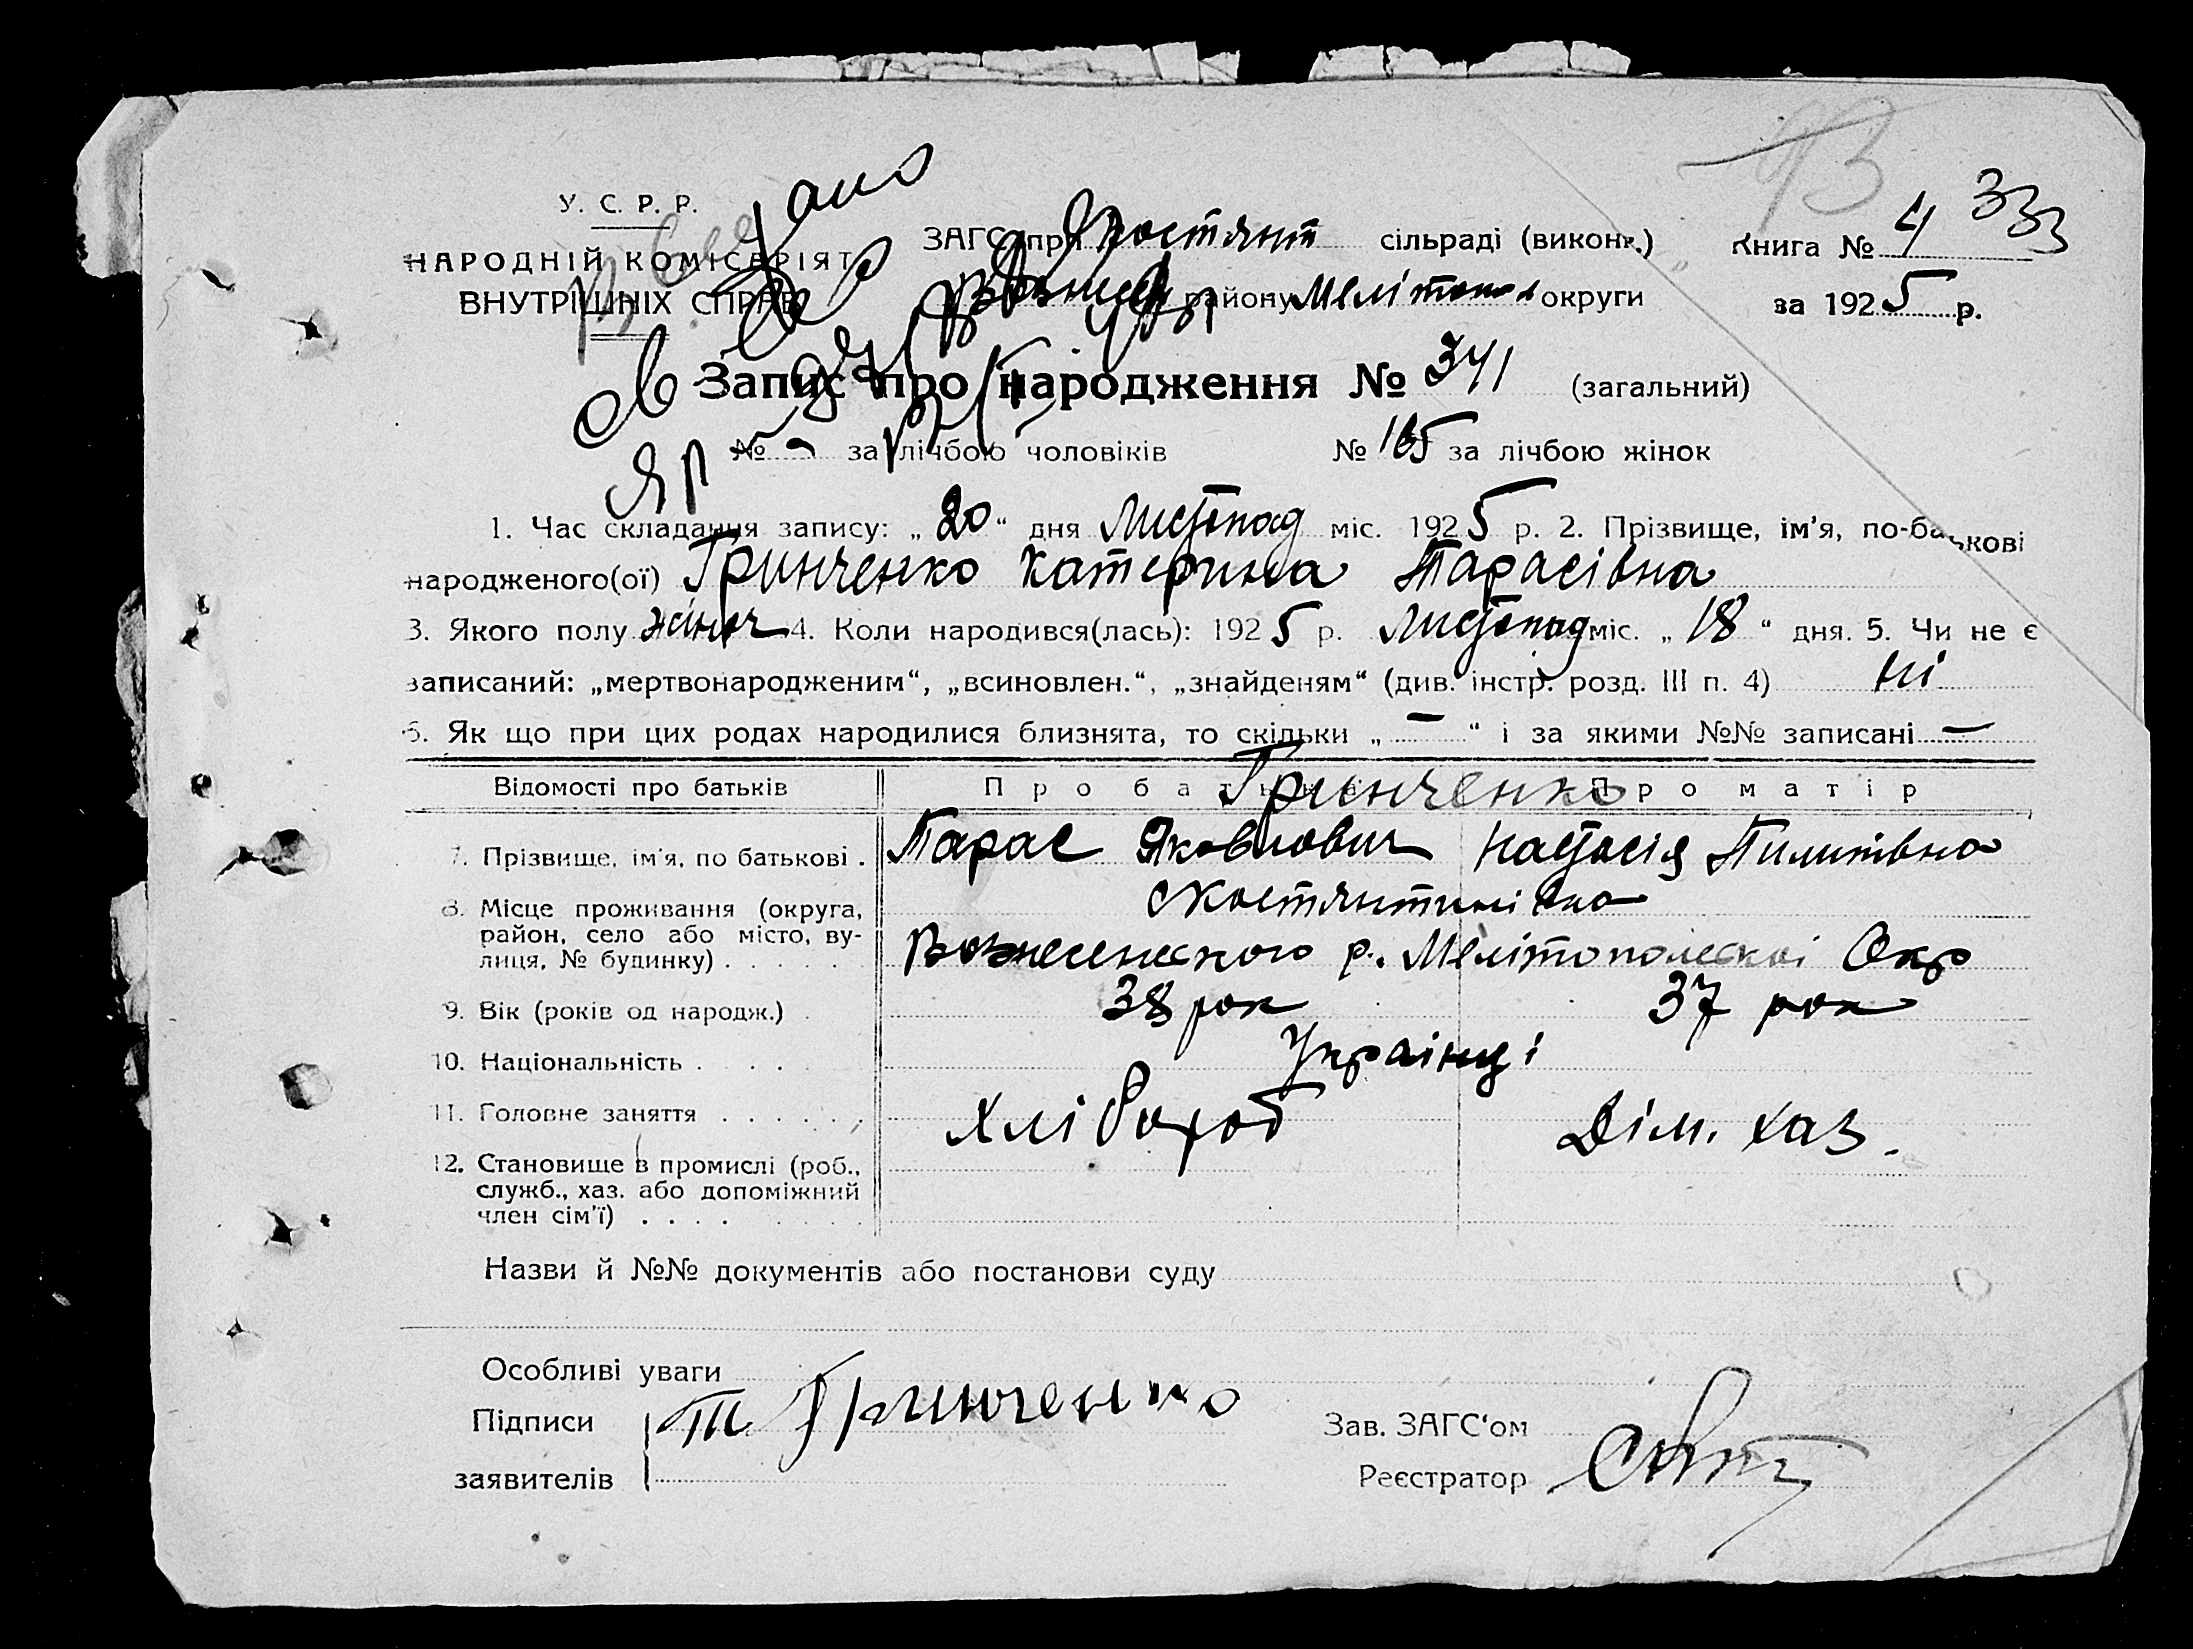 93
У. С. Р. Р.
НАРОДНІЙ КОМІСАРІЯТ
ВНУТРІШНІХ СПРАВ
ЗАГС при Костянт сільраді (виконк.)
Вознесен району Мелітопол округи
Книга № 4 333
за 1925 р.
Запис про народження № 341 (загальний)
№ - за лічбою чоловіків № 165 за лічбою жінок
1. Час складання запису: „20“ дня Листопад міс. 1925 р. 2. Прізвище, ім'я, по-батькові
народженого(ої) Гринченко Катерина Тарасівна
3. Якого полу жіноч 4. Коли народився(лась): 1925 р. Листопад міс. „18“ дня. 5. Чи не є
записаний: „мертвонародженим“, „всиновлен.“, „знайденям“ (див. інстр. розд. III п. 4) ні
6. Як що при цих родах народилися близнята, то скільки „—“ і за якими №№ записані —
Відомості про батьків Про батька Про матір
Гринченко
7. Прізвище, ім'я, по батькові . Тарас Яковлович Настасія Пилипівна
8. Місце проживання (округа, район, село або місто, вулиця, № будинку) . . . . . Костянтинівка
Вознесенского р. Мелітополескоі Окр
9. Вік (років од народж.) . 38 рок 37 рок
10. Національність . . . . Украінці
11. Головне заняття . . . . . . Хлібороб Дім. хаз.
12. Становище в промислі (роб., служб., хаз. або допоміжний член сім'ї) . . . .
Назви й №№ документів або постанови суду
Особливі уваги
Підписи заявителів Т Гринченко
Зав. ЗАГС'ом
Реєстратор